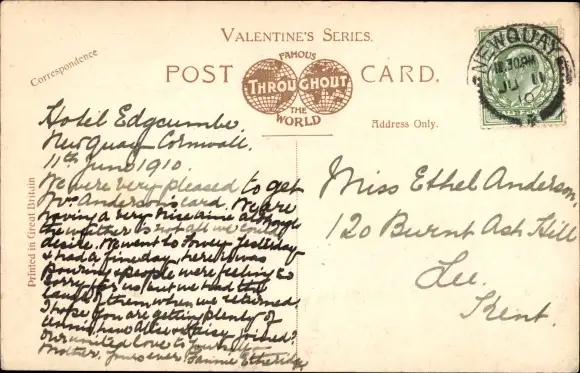 VALENTINE'S SERIES.
Correspondence
POST CARD.
FAMOUS
THROUGHOUT
THE
WORLD
Address Only.
Printed in Great Britain
NEWQUAY
JU 11
10
Hotel Edgcumbe,
Newquay Cornwall.
11th June 1910
We were very pleased to get
Mrs Anderson's card. We are
having a very nice time although
the weather is not all we could
desire. We went to Fowey yesterday
& had a fine day, here it was
pouring & people were feeling so
sorry for us, but we had the
laugh of them when we returned.
I hope you are getting plenty of
tennis, have Alice & joined?
Our united love to yourself &
Mother. Yours ever Fannie Etheridge
Miss Ethel Anderson,
120 Burnt Ash Hill
Lee.
Kent.